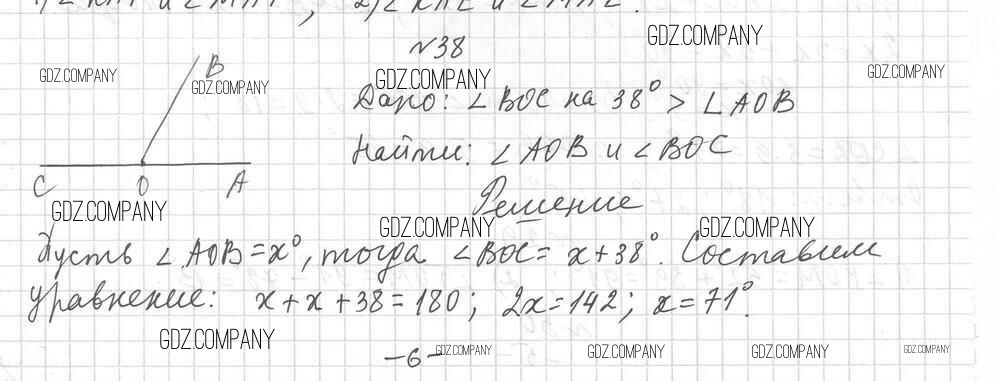 №38
GDZ.COMPANY
GDZ.COMPANY GDZ.COMPANY GDZ.COMPANY GDZ.COMPANY
B
Дано: ∠BOC на 38° > ∠AOB
Найти: ∠AOB и ∠BOC
C O A
Решение
GDZ.COMPANY GDZ.COMPANY GDZ.COMPANY
Пусть ∠AOB = x°, тогда ∠BOC = x + 38°. Составим
уравнение: x + x + 38 = 180; 2x = 142; x = 71°.
GDZ.COMPANY
-6-
GDZ.COMPANY GDZ.COMPANY GDZ.COMPANY GDZ.COMPANY